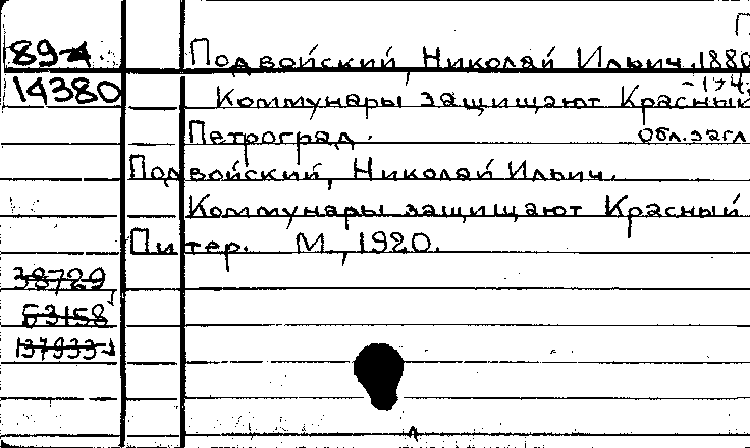 П
89-4 Подвойский, Николай Ильич, 1880
14380 Коммунары защищают Красный
Петроград. Обл. загл
Подвойский, Николай Ильич.
Коммунары защищают Красный
Питер. М., 1920.
38729
53158